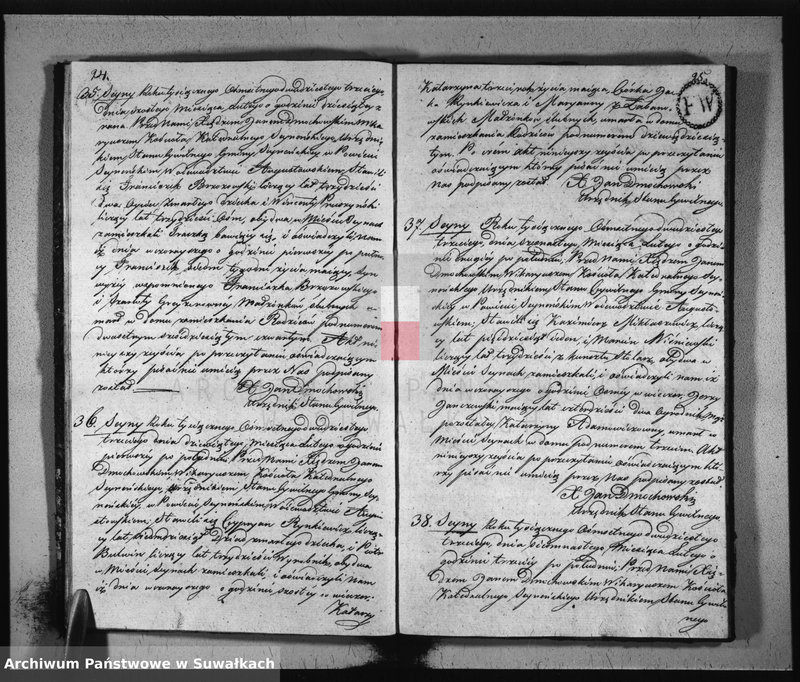 24.
35. Seyny Roku tysiącznego Ośmsetnego dwudziestego trzeciego
Dnia szostego Miesiąca Lutego o godzinie dziesiątey z
rana Przed Nami Xiędzem Janem Dmochowskim Wika
ryuszem Kościoła Katedralnego Seyneńskiego, Urzędni
kiem Stanu Cywilnego Gminy Seyneńskiey w Powiecie
Seyneńskim Woiewodztwie Augustowskiem, Stawili
się Franciszek Brzozowski liczący lat trzydzieści
dwa Oyciec zmarłego dziecka i Wincenty
liczący lat trzydzieści Ośm, obydwa w Mieście Seynach
zamieszkali bawiący się, i oświadczyli Nam
iż dnia wczorayszego o godzinie pierwszey po połud
niu Franciszek siedm tygodni życia maiący, Syn
wyżey wspomnionego Franciszka Brzozowskiego
i Małżonków ślubnych u-
marł w domu zamieszkania Rodziców pod numerem
dwusetnym sześćdziesiątym czwartym. Akt ni-
nieyszy po przeczytaniu oświadczaiącym
którzy pisać nie umieią przez Nas podpisany
został
X. Jan Dmochowski
Urzędnik Stanu Cywilnego.
36. Seyny Roku tysiącznego Ośmsetnego dwudziestego
trzeciego dnia dziewiątego, Miesiąca Lutego o godzinie
pierwszey po południu Przed Nami Xiędzem Janem
Dmochowskim Wikaryuszem Kościoła Katedralnego
Seyneńskiego, Urzędnikiem Stanu Cywilnego Gminy Sey-
neńskiey, w Powiecie Seyneńskim Woiewództwie Augu-
stowskiem; Stawili się Cyppryan Rynkiewicz liczą-
cy lat, Dziad zmarłego dziecka, i Piotr
liczący lat trzydzieści Wyrobnik, obydwa
w Mieście Seynach zamieszkali, i oświadczyli Nam
iż dnia wczorayszego o godzinie szostey w wieczor.
Katarzy
25.
FW
Katarzyna trzeci rok życia maiąca Córka Ja-
ka Rynkiewicza i Maryanny z
Małżonków ślubnych, umarła w domu
zamieszkania Rodziców pod numerem dziewięćdziesią-
tym. Po czem Akt ninieyszy po przeczytaniu
oświadczaiącym którzy pisać nie umieią przez
Nas podpisany został
X. Jan Dmochowski
Urzędnik Stanu Cywilnego.
37. Seyny Roku tysiącznego Ośmsetnego dwudziestego
trzeciego, dnia Miesiąca Lutego o godzi
nie drugiey po południu, Przed Nami Xiędzem Janem
Dmochowskim Wikaryuszem Kościoła Katedralnego Sey-
neńskiego, Urzędnikiem Stanu Cywilnego Gminy Seyneń-
skiey w Powiecie Seyneńskim Woiewództwie Augusto-
wskiem; Stawili się Kazimierz liczą-
cy lat pięćdziesiąt ieden, i Marcin Wisniewski
liczący lat trzydzieści z kunsztu obydwa w
Mieście Seynach zamieszkali, i oświadczyli nam iż
dnia wczorayszego o godzinie Osmey w wieczor, Jerzy
maiący lat czterdzieści dwa Ogrodnik,
pozostałey Katarzyny z Adamowiczow, umarł w
Mieście Seynach w domu pod numerem trzecim. Akt
ninieyszy po przeczytaniu oświadczaiącym któ-
rzy pisać nie umieią przez Nas podpisany został.
X. Jan Dmochowski
Urzędnik Stanu Cywilnego.
38. Seyny Roku tysiącznego Ośmsetnego dwudziestego
trzeciego, dnia Miesiąca Lutego o
godzinie trzeciey po południu, Przed Nami Xię-
dzem Janem Dmochowskim Wikaryuszem Kościoła
Katedralnego Seyneńskiego Urzędnikiem Stanu Cywil-
nego
Archiwum Państwowe w Suwałkach